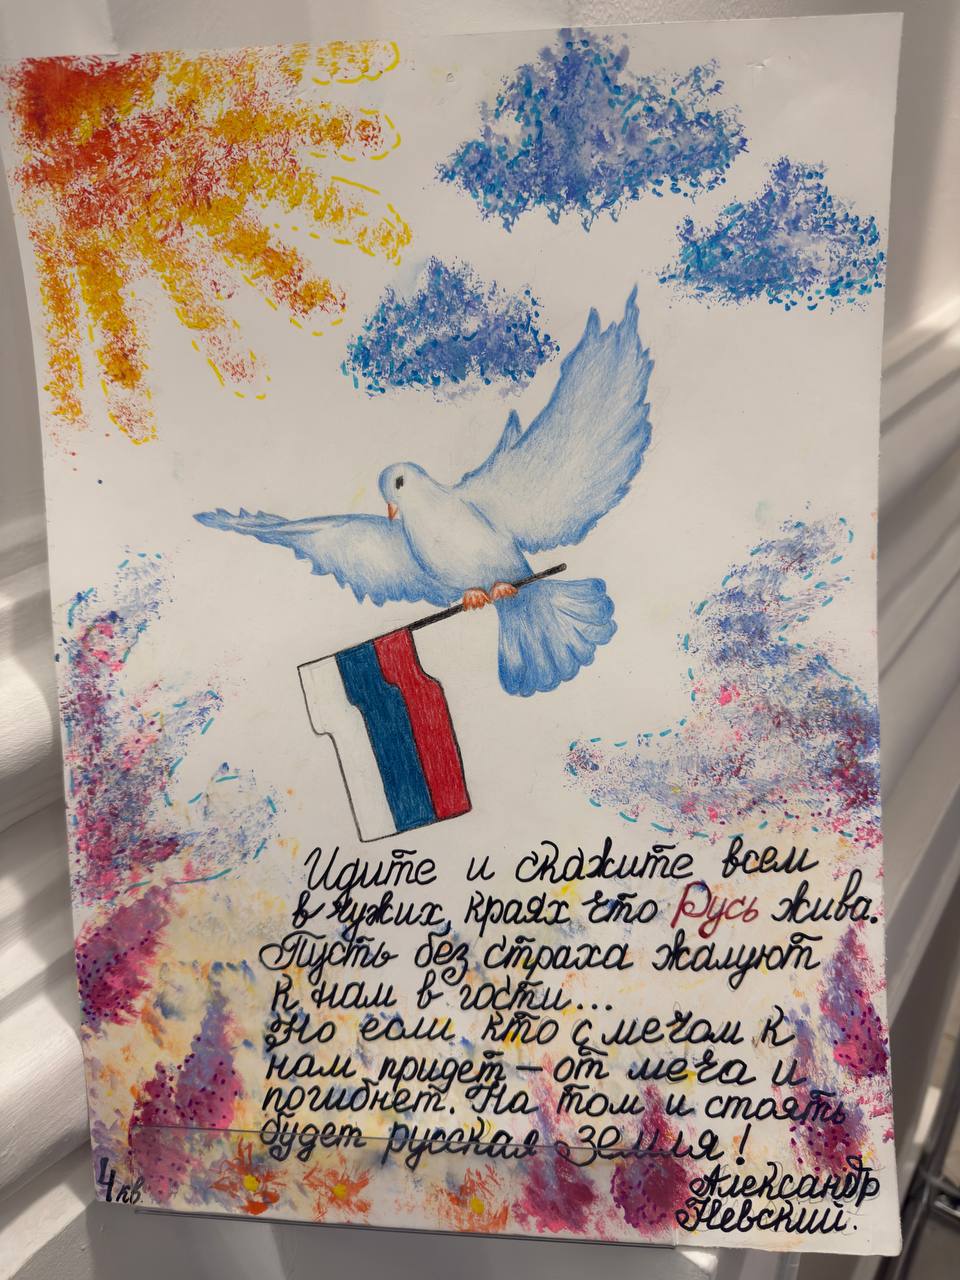 Идите и скажите всем
в чужих, краях что Русь жива.
Пусть без страха жалуют
к нам в гости...
Но если кто с мечом к
нам придет – от меча и
погибнет. На том и стоять
будет русская Земля!
Александр
Невский.
4 кв.